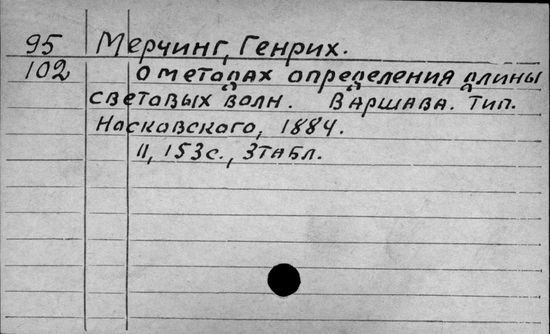 95 Мерчинг, Генрих.
102 О методах определения длины
световых волн. Варшава. Тип.
Носковского, 1884.
II, 153с., 3табл.